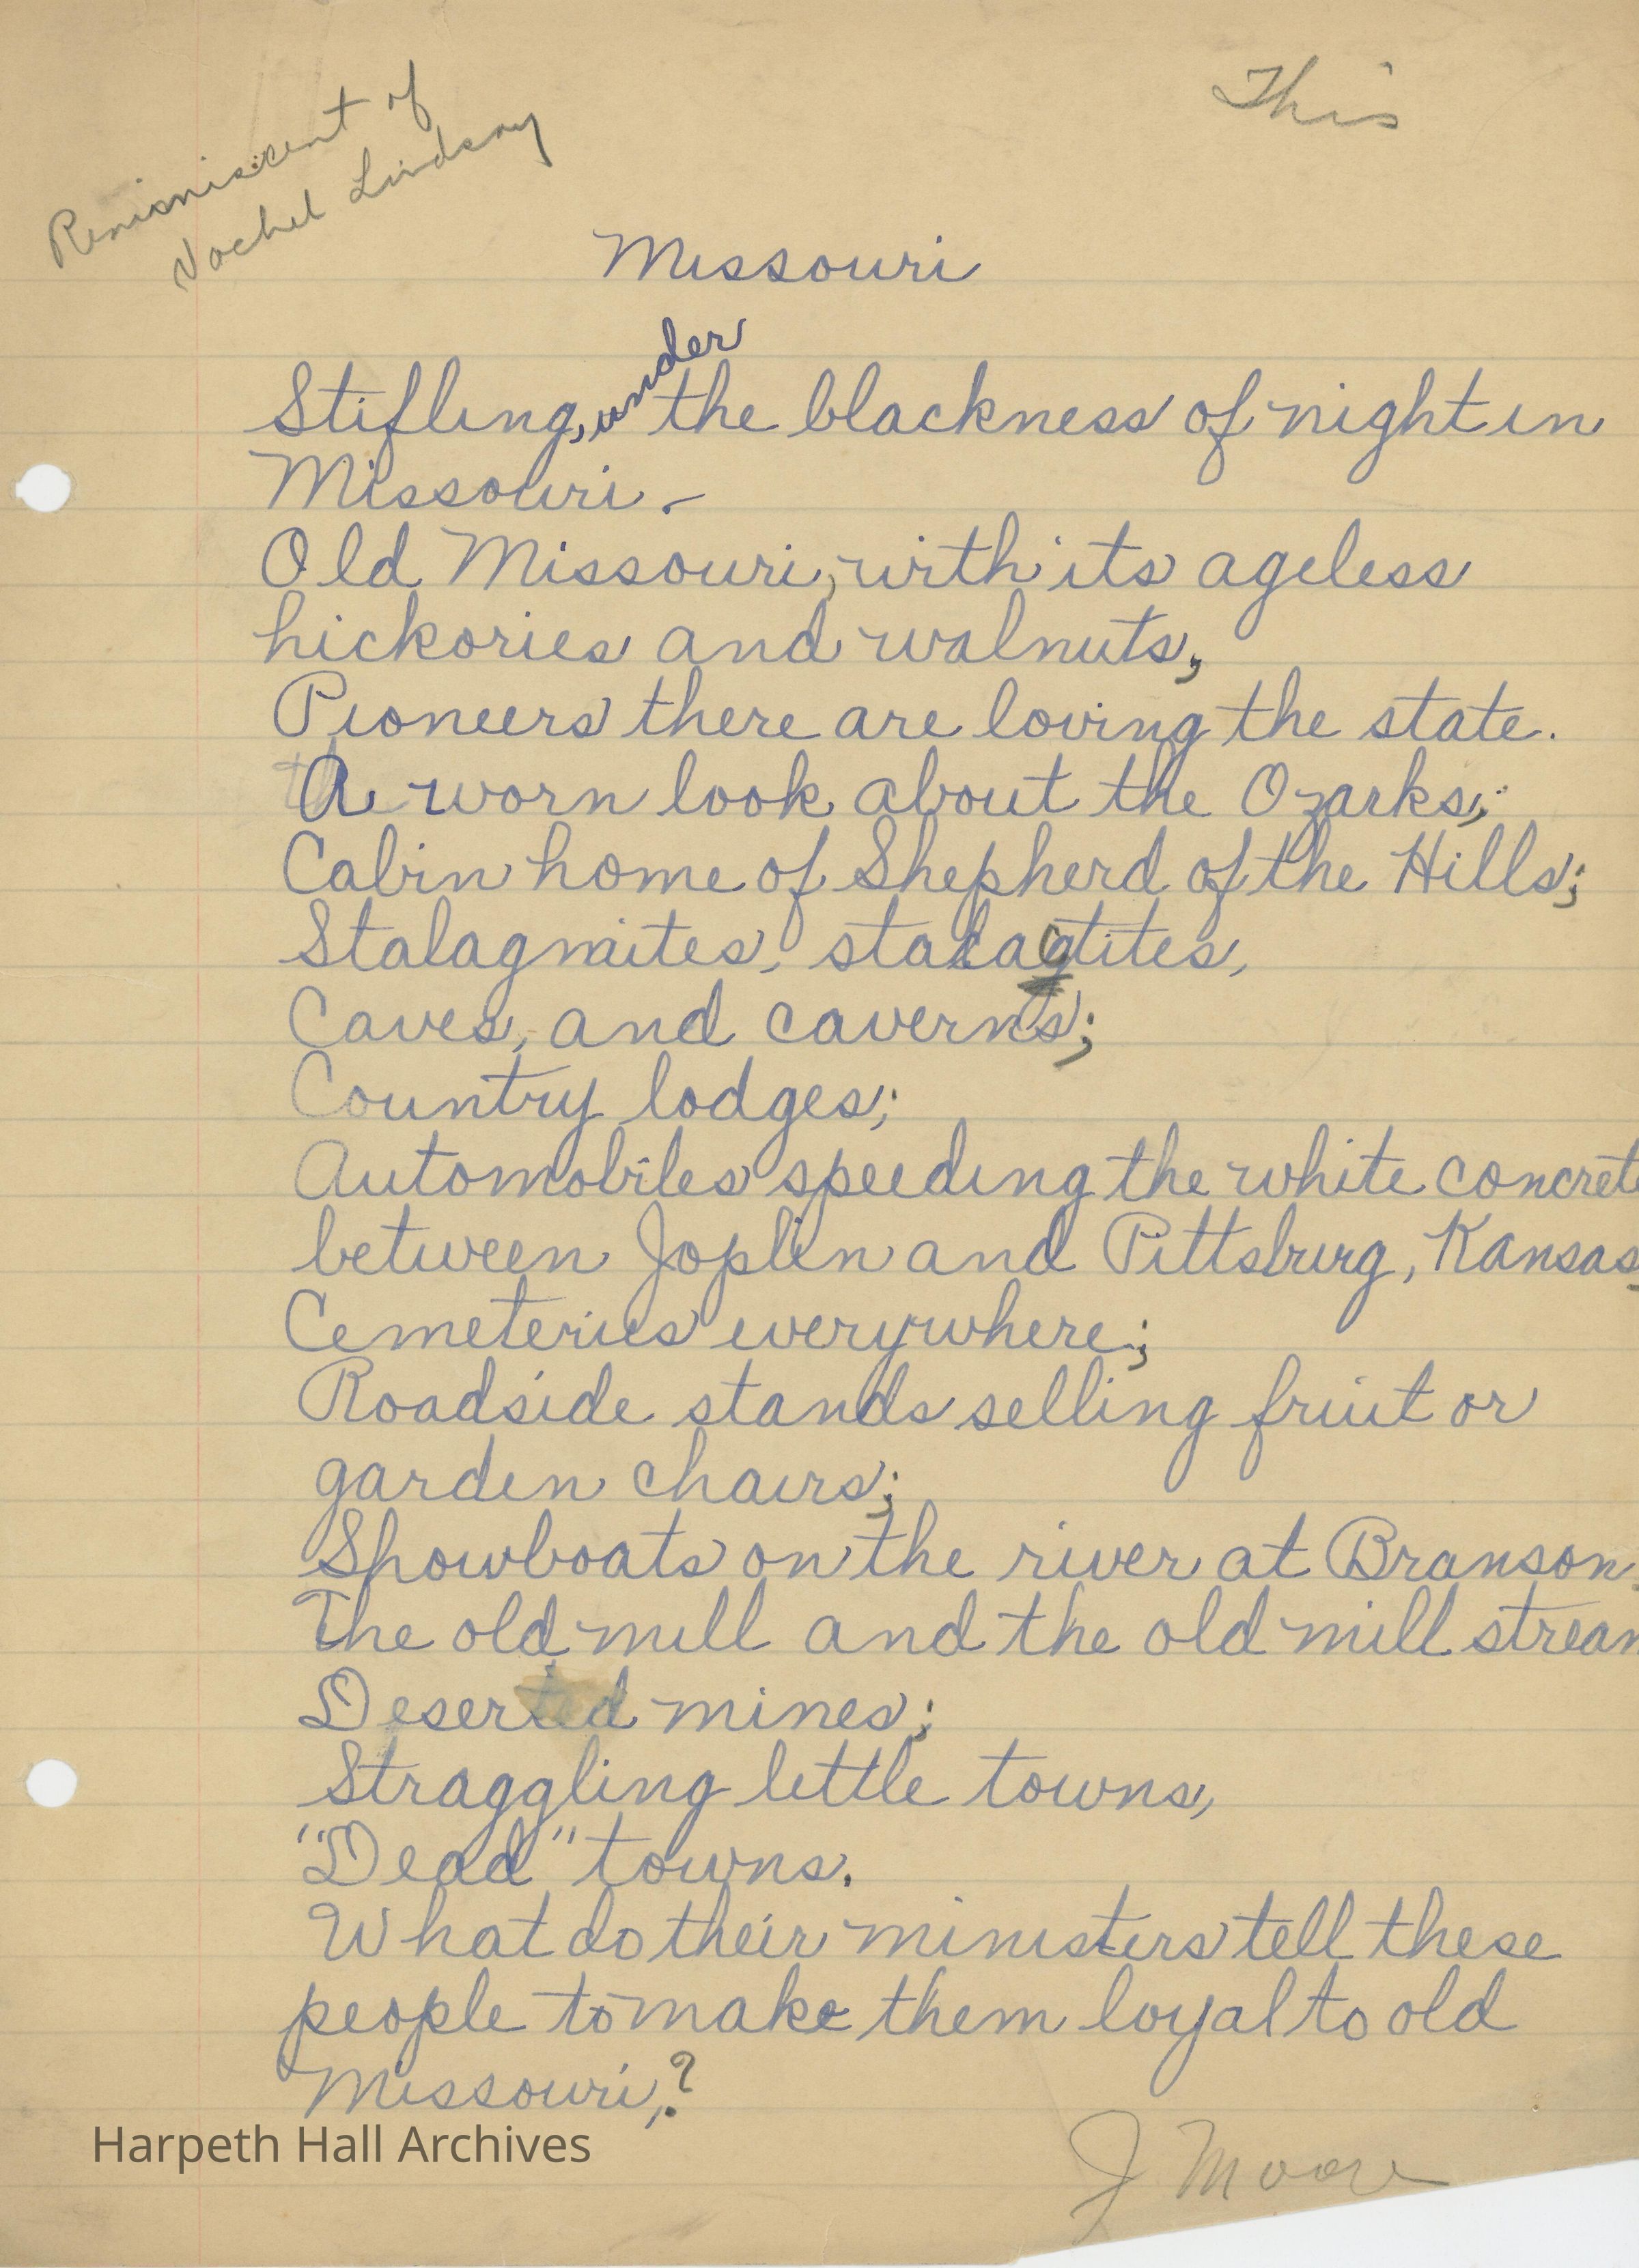 This
Reminiscent of
Vachel Lindsay
Missouri
Stifling, under the blackness of night in
Missouri. –
Old Missouri, with its ageless
hickories and walnuts,
Pioneers there are loving the state.
A worn look about the Ozarks;
Cabin home of Shepherd of the Hills;
Stalagmites, stalactites,
Caves, and caverns;
Country lodges;
Automobiles speeding the white concrete
between Joplin and Pittsburg, Kansas;
Cemeteries everywhere;
Roadside stands selling fruit or
garden chairs;
Showboats on the river at Branson
The old mill and the old mill stream
Deserted mines;
Straggling little towns,
"Dead" towns.
What do their ministers tell these
people to make them loyal to old
Missouri,?
J Moore
Harpeth Hall Archives